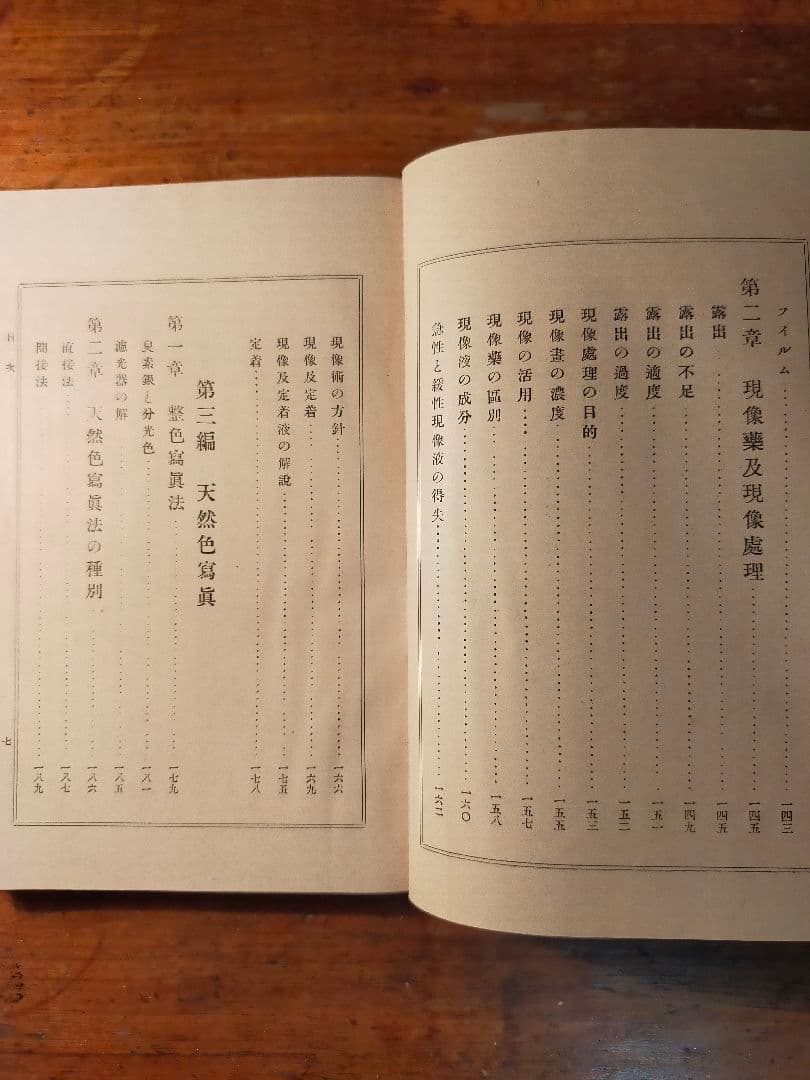 フイルム……一四三
第二章　現像藥及現像處理……一四五
露出……一四五
露出の不足……一四九
露出の適度……一五一
露出の過度……一五二
現像處理の目的……一五三
現像畫の濃度……一五五
現像の活用……一五七
現像藥の區別……一五八
現像液の成分……一六〇
急性と緩性現像液の得失……一六二
現像術の方針……一六六
現像及定着……一六九
現像及定着液の解說……一七五
定着……一七八
第三編　天然色寫眞
第一章　整色寫眞法……一七九
臭素銀と分光色……一八一
濾光器の解……一八五
第二章　天然色寫眞法の種別……一八六
直接法……一八七
間接法……一八九
目次
七